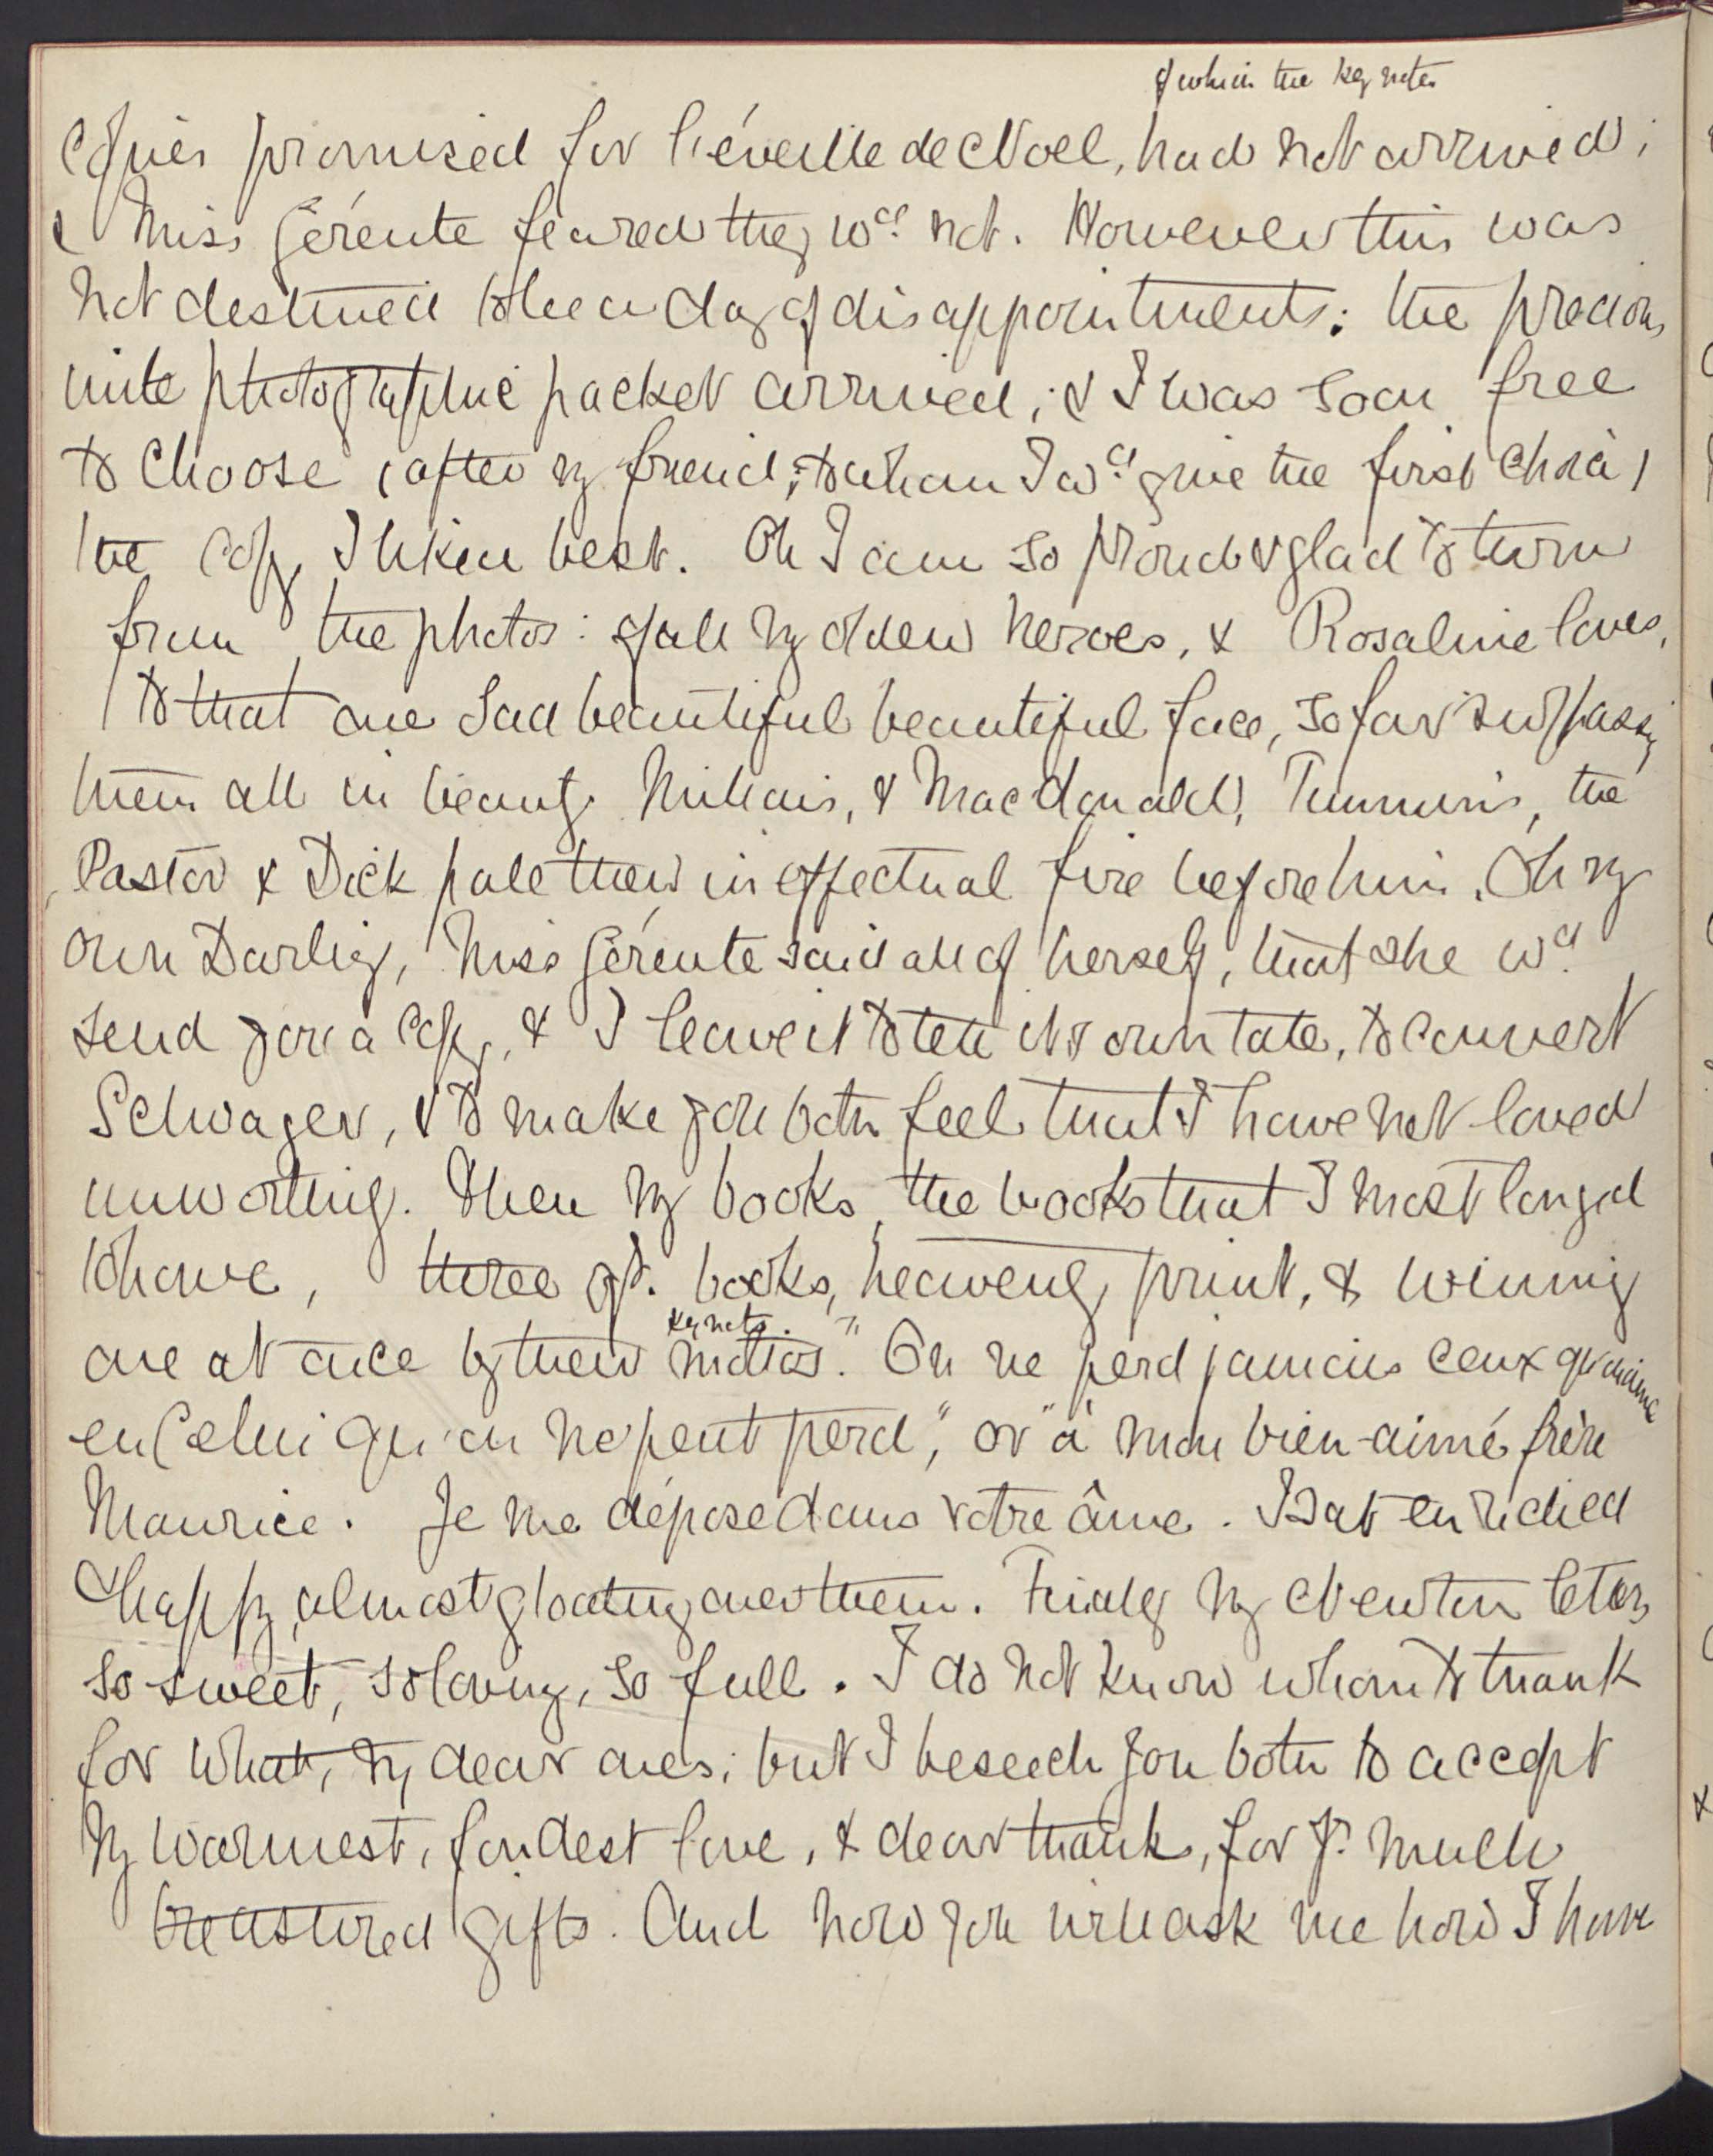 of which the key notes
copies promised for l'éveille de Noel, had not arrived;
& Miss Gérente feared they wd. not. However this was
not destined to be a day of disappointments: the precious
little photographic packet arrived; & I was soon free
to choose (after my friend, to whom I wd. give the first choice)
the copy I liked best. Oh I am so proud & glad to turn
from the photos: of all my olden heroes, & Rosaline loves,
to that one sad beautiful beautiful face, so far surpassing
them all in beauty. Millais, & Macdonald, Timmins, the
Pastor & Dick pale their ineffectual fire before him. Oh my
own Darling, Miss Gérente said all of herself, that she wd.
send you a copy, & I leave it to tell its own tale, to convert
Schwager, & to make you both feel that I have not loved
unworthily. Then my books, the books that I most longed
to have, three gt. books, heavenly print, & winning
key note.
one at once by their mottos. "On ne perd jamais ceux qu'on aime
en Celui qu'on ne peut perd", or "à mon bien-aimé frère
Maurice. Je me dépose dans votre âme. I sat enriched
& happy, almost gloating over them. Finally my Newton letters,
so sweet, so loving, so full. I do not know whom to thank
for what, my dear ones; but I beseech you both to accept
my warmest, fondest love, & dear thanks, for yr. much
treasured gifts. And now you will ask me how I have